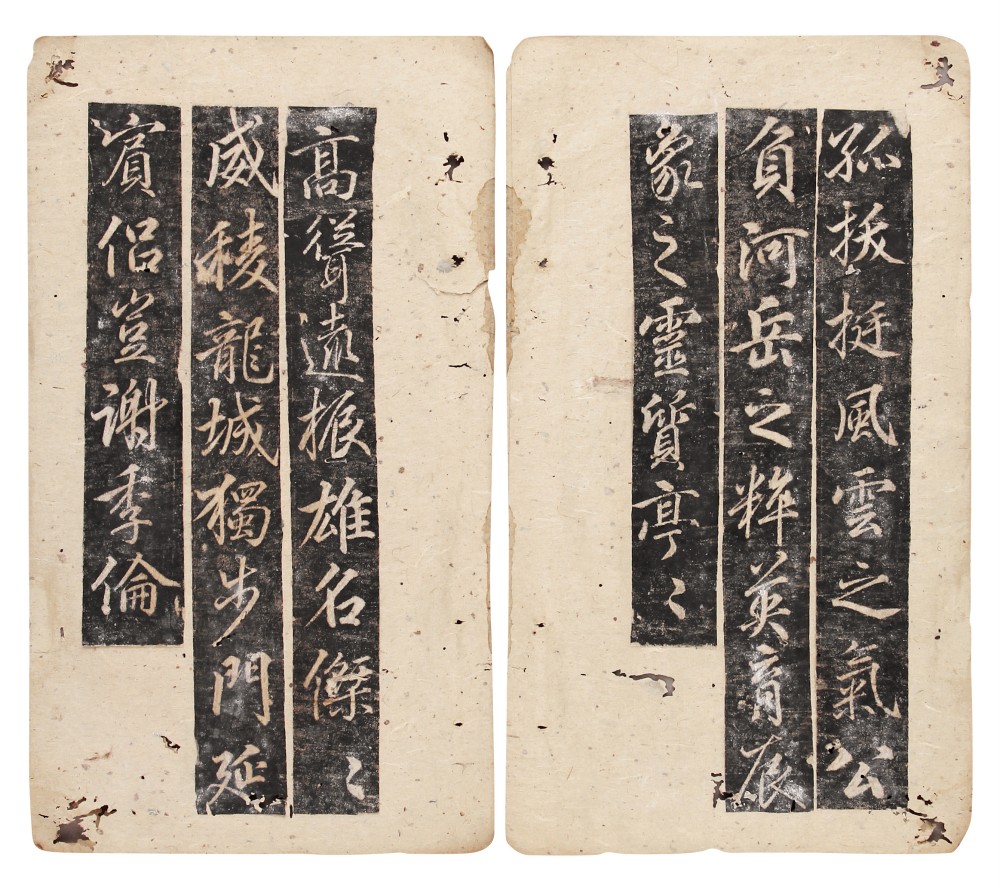 孤拔挺風雲之氣公
負河岳之粹英育辰
象之靈質亭〻
高聳遠振雄名傑〻
威稜龍城獨步門延
賓侶豈謝季倫